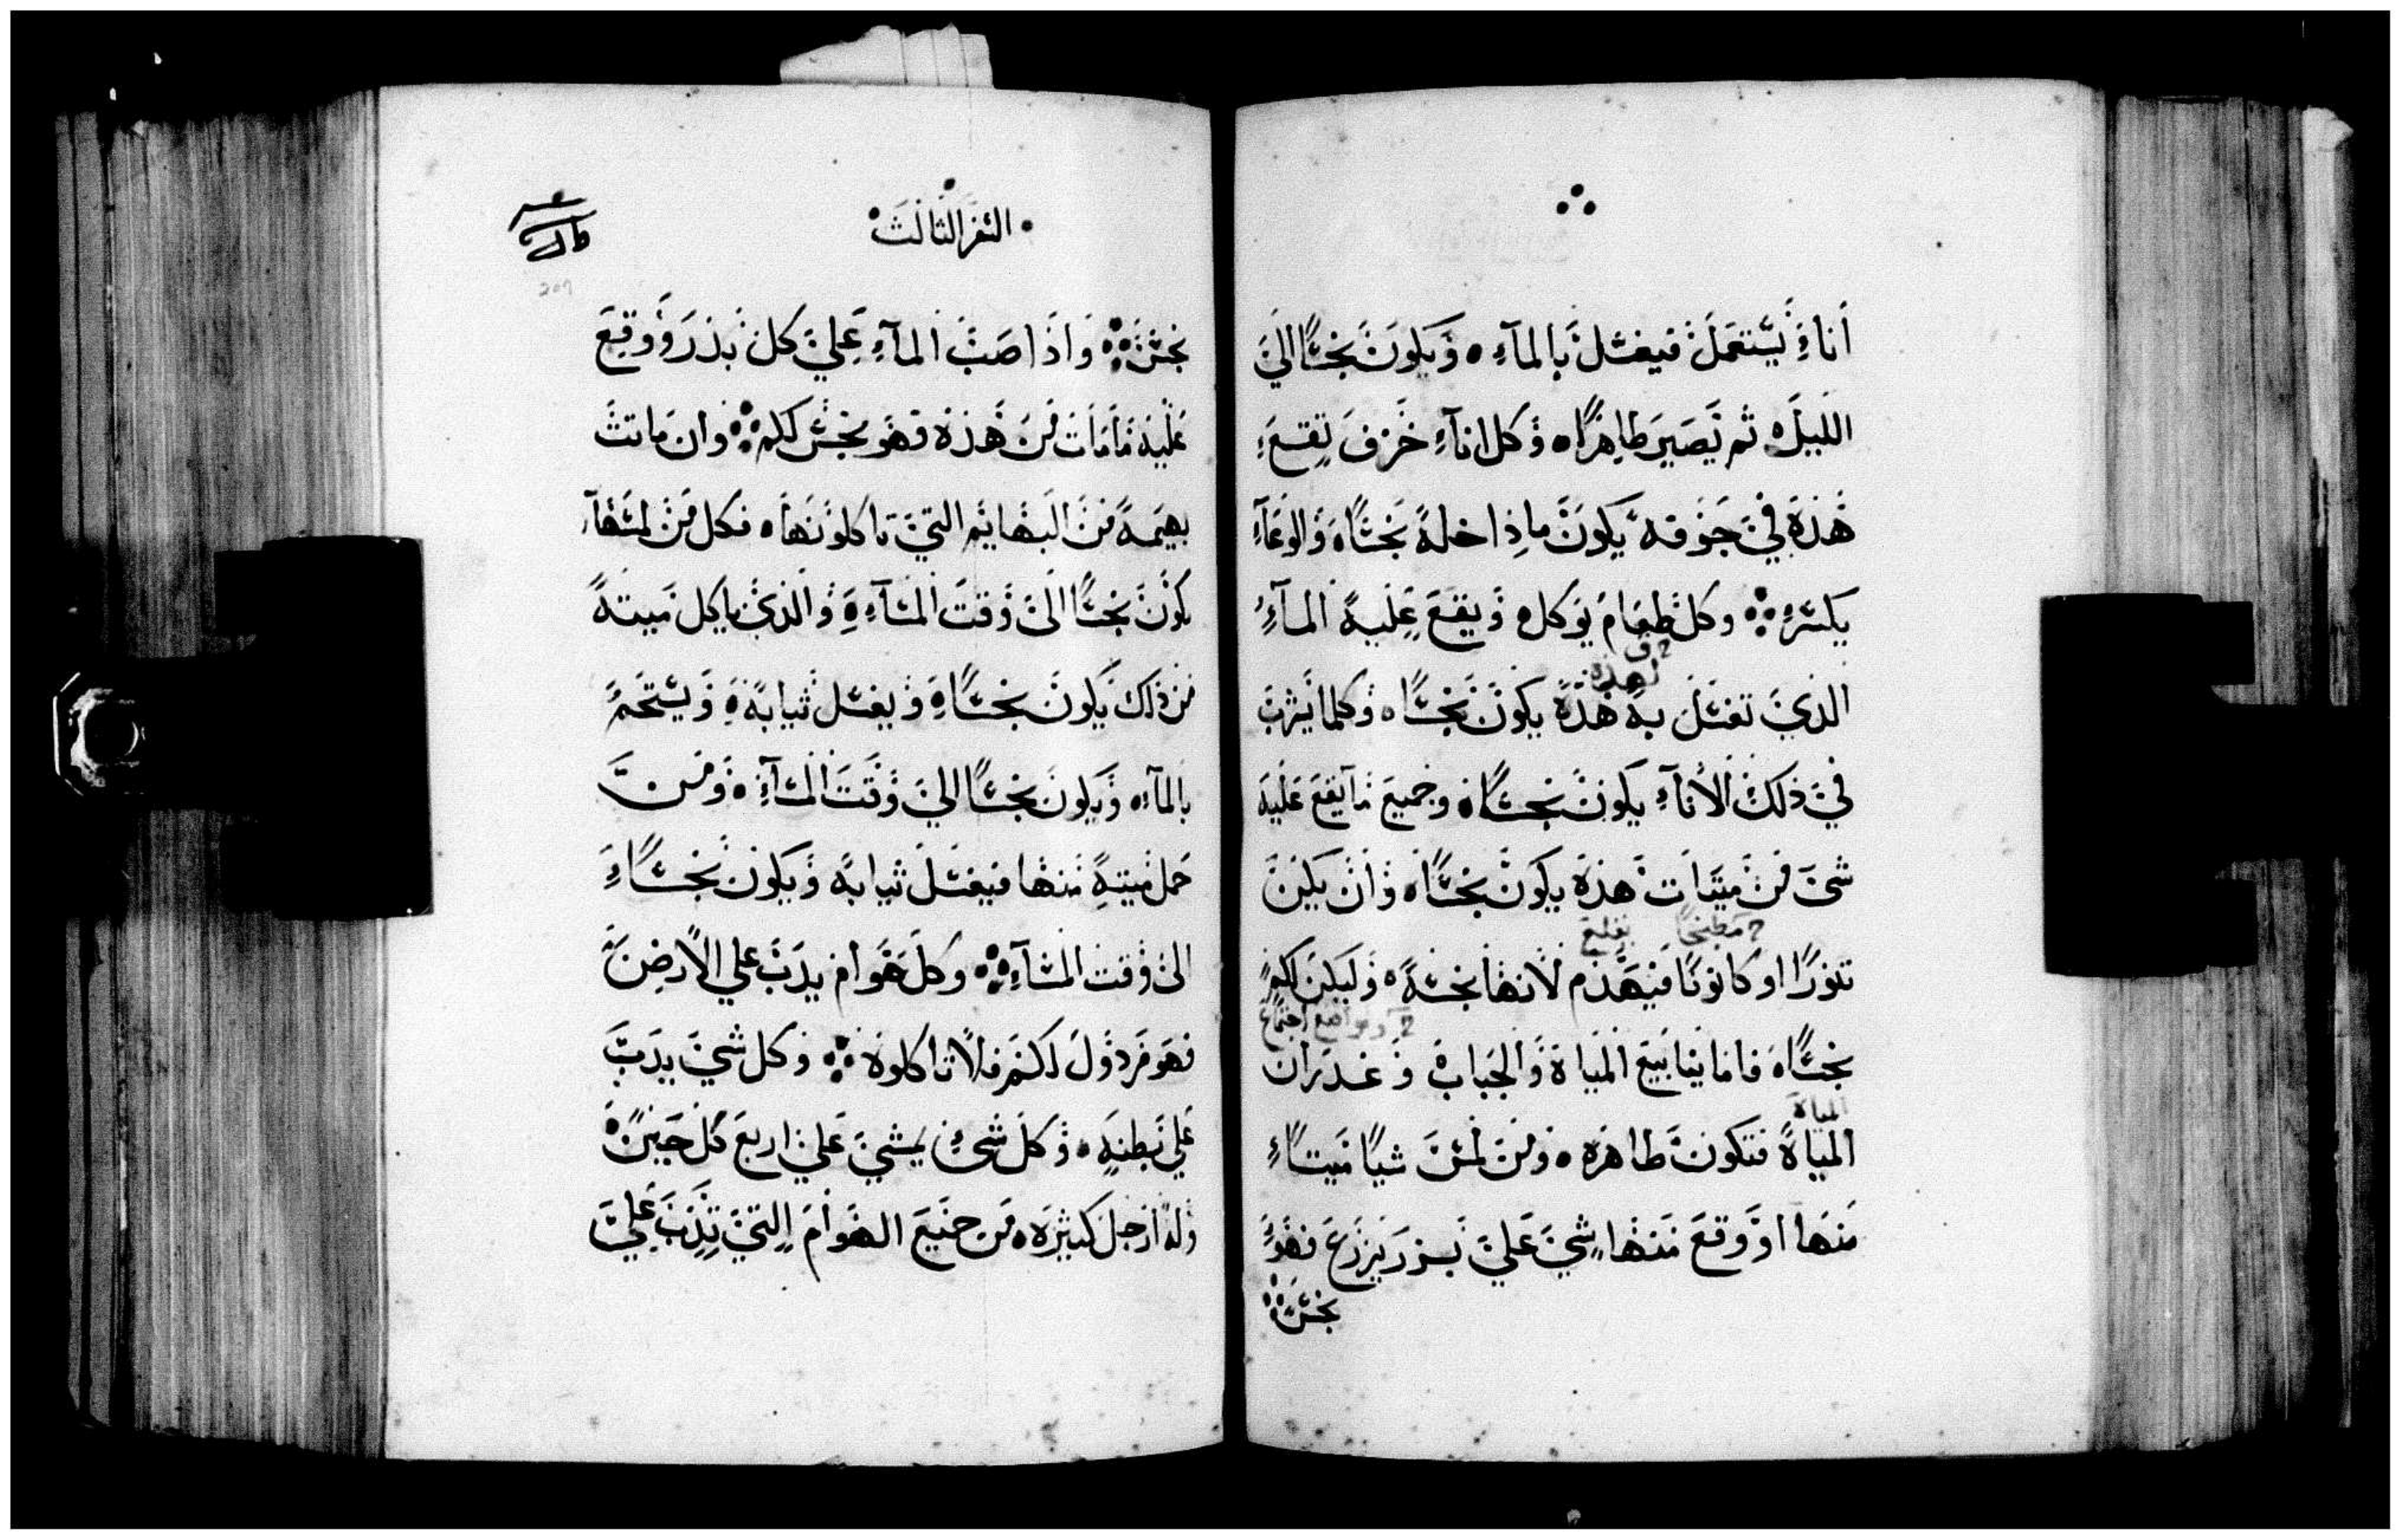 اناءٍ يُستعمل فيغسل بالمآءِ ويكون نجسًا الي
الليل ثم يصير طاهرًا وكل انآءِ خزف تقع
هذه في جوفه يكون ماداخله نجسًا والوعآء
يكسر وكل طعام يوكل ويقع عليه المآءُ
لهذه
الذي تغسل به هذه يكون نجسًا وكلما يشرب
في ذلك الانآءِ يكون نجسًا وجميع ما يقع عليه
شئ من ميتات هذه يكون نجسًا وان يكن
مطبخًا يقلع
تنورًا او كانونًا فيهدم لانها نجسة وليكن لكم
ومواضع اجتماع
نجسًا فاما ينابيع المياة والجباب وغدران
المياة
المياة فتكون طاهره ومن لمس شيًا ميتًا
منها او وقع منها شي علي بزر يزرع فهو
نجس
السفر الثالث
207
نجس واذا صب المآءِ علي كل بذر ووقع
عليه مامات من هذه فهو نجس لكم وان ماتت
بهيمة من البهايم التي تاكلونها فكل من لمسها
يكون نجسًا الى وقت المسآءِ والذي ياكل ميتة
من ذلك يكون نجسًا ويغسل ثيابه ويستحم
بالمآء ويكون نجسًا الي وقت المسآءِ ومن
حمل ميتةٍ منها فيغسل ثيابه ويكون نجسًا
الى وقت المسآءِ وكل هوام يدب علي الارض
فهو مردول لكم فلا تاكلوه وكل شي يدب
علي بطنه وكل شي يمشي علي اربع كل حين
وله ارجل كثيره من جميع الهوام التي تدب علي